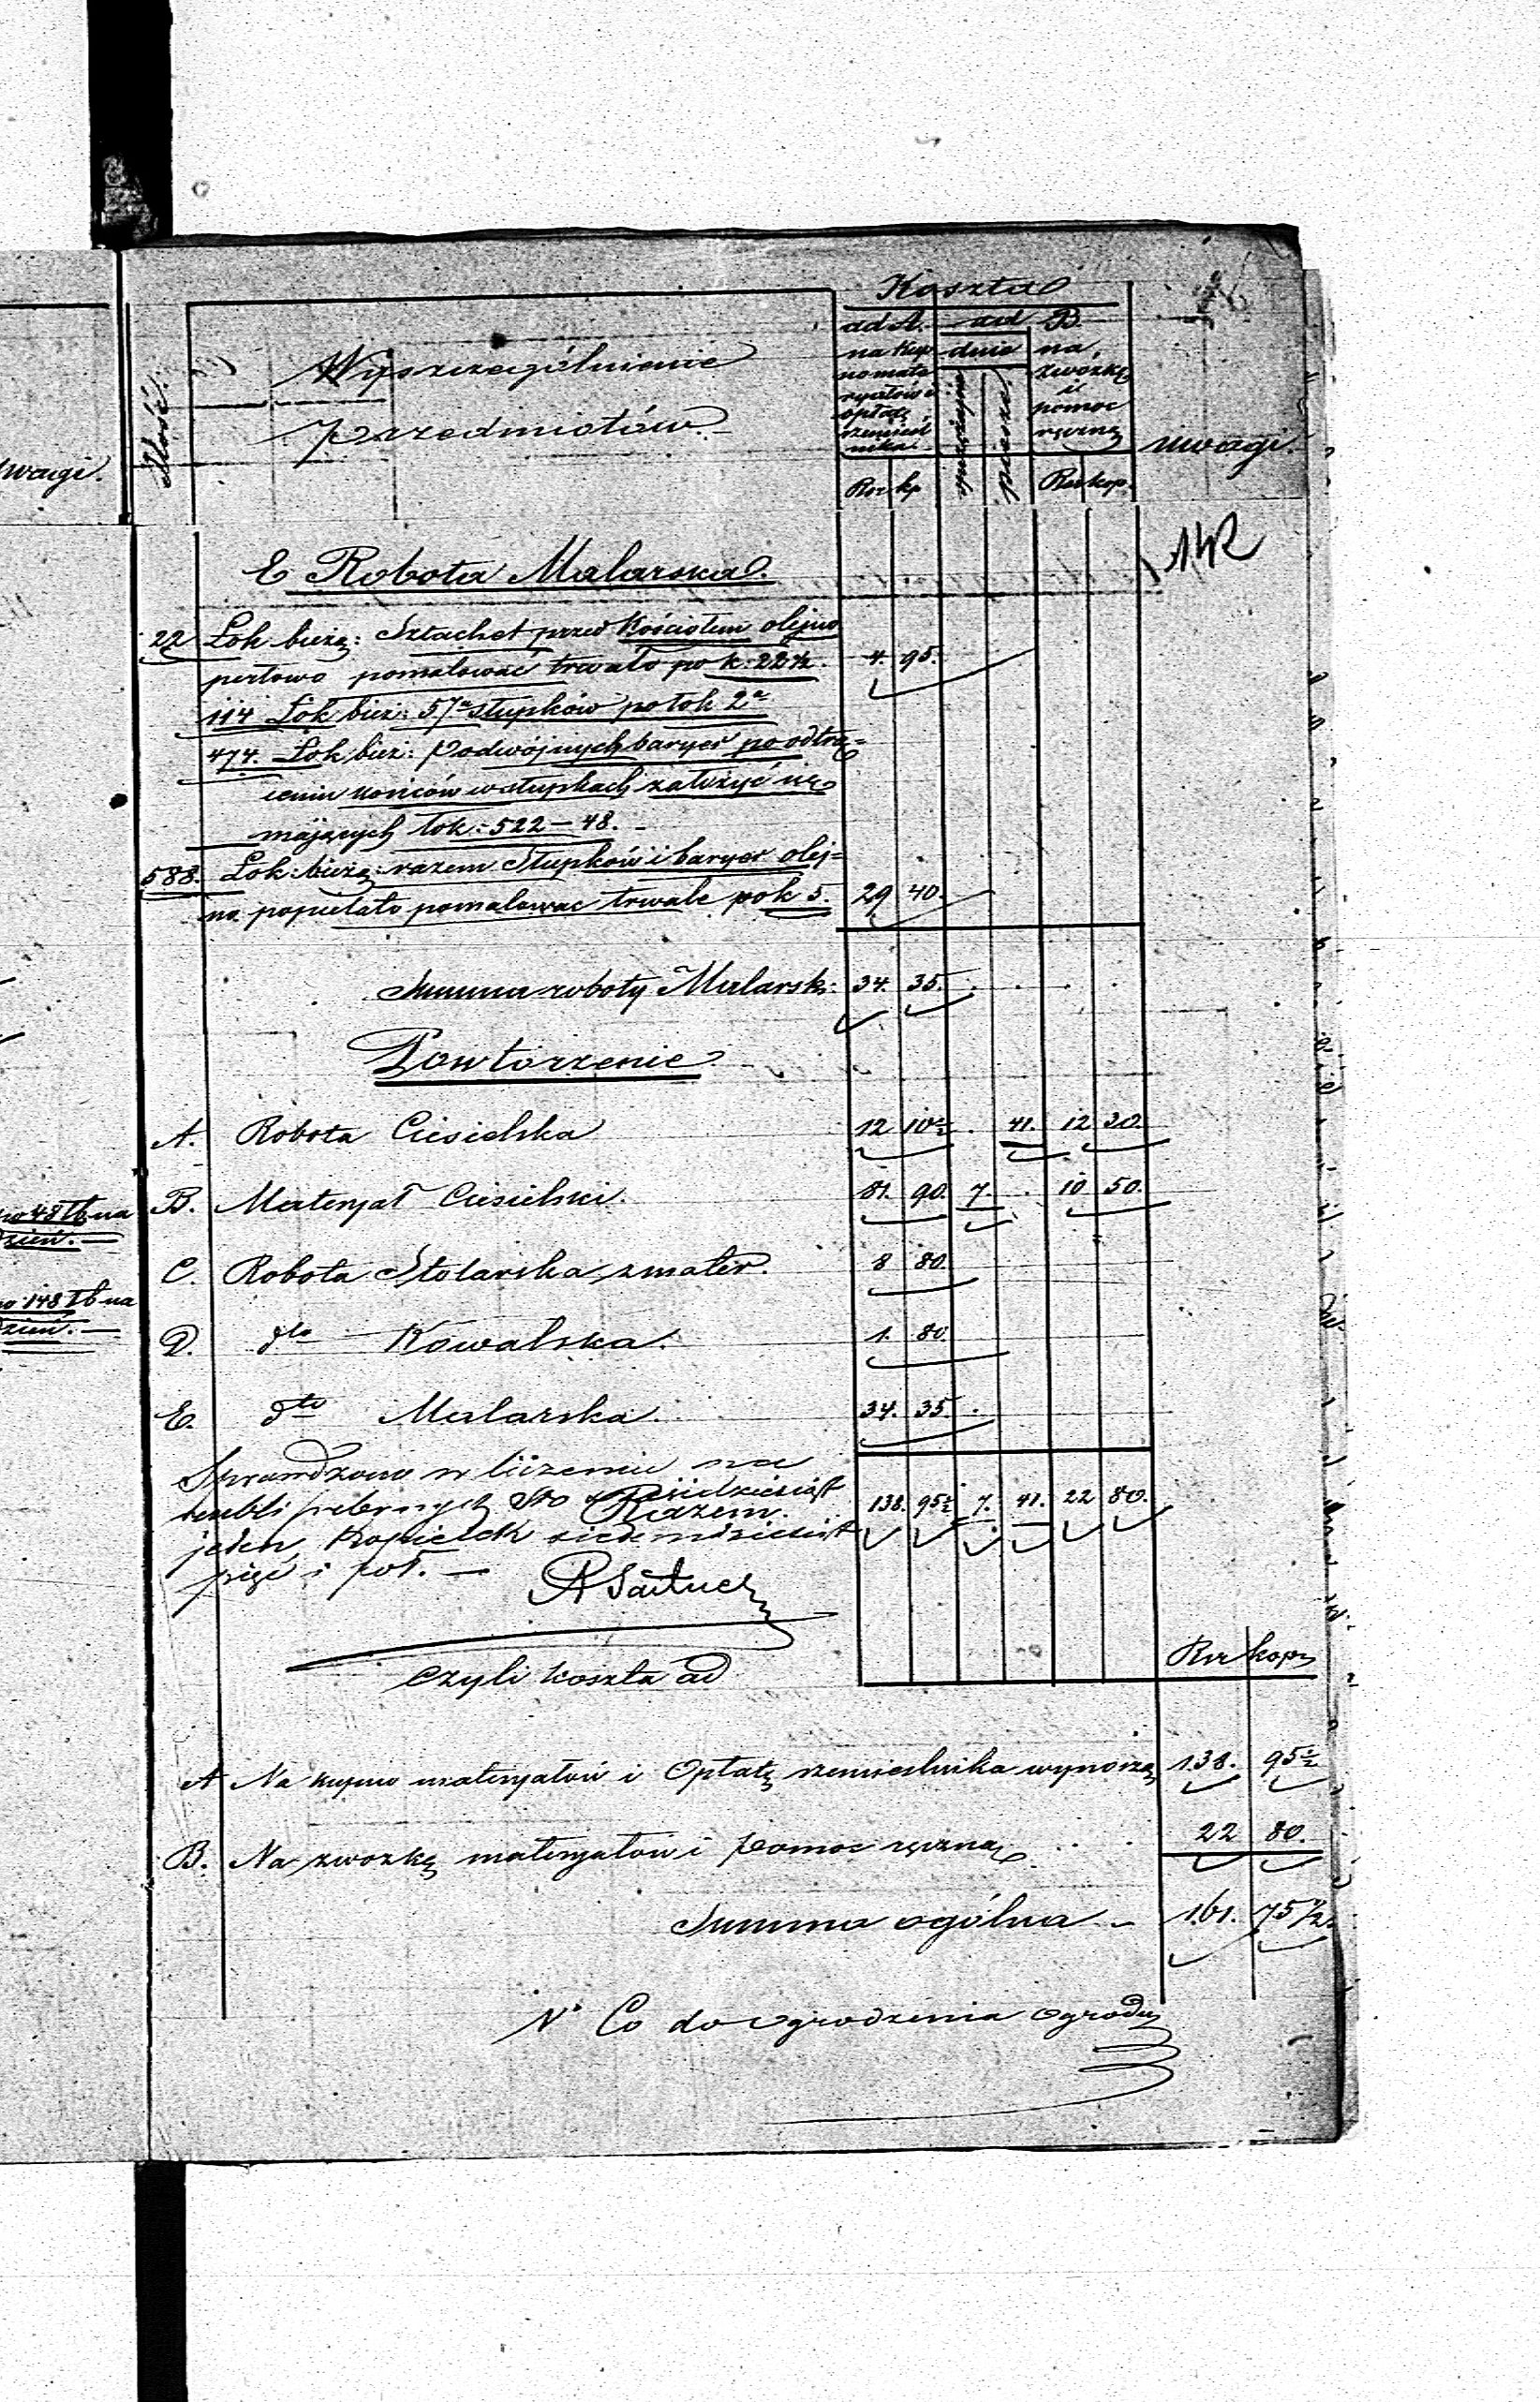 wagi.
Ilość.
Wyszczególnienie
Przedmiotów.
Koszta
ad A.
na kup
no mate
ryałów i
opłatę
rzemieśl
nika.
Rsr kp
ad B.
dnie
sprzężajne
piesze
na
zwózkę
i
pomoc
ręczną
Rsr kop.
uwagi.
142
E Robota Malarska.
22 Łok bieżą: Sztachet przed Kościołem olejno
perłowo pomalować trwało po k: 22½. 4. 95.
114 Łok bież: 57 słupków po łok 2
474. Łok bież: Podwójnych baryer po odtrą=
ceniu końców w słupkach założyć się
mających łok: 522 – 48.
588. Łok: bieżą: razem Słupków i baryer olej=
no popielato pomalować trwale po k 5. 29 40.
Summa roboty Malarsk: 34. 35.
Powtórzenie
A. Robota Ciesielska 12 10½ . 41. 12 30.
B. Materyał Ciesielski. 81. 90. 7. . 10 50.
po 48 ℔ na
dzień. —
C. Robota Stolarska z mater. 8 80.
po 148 ℔ na
dzień. —
D. dto Kowalska. 1. 80.
E. dto Malarska. 34. 35.
Sprawdzono w liczeniu na
rubli srebrnych Sto sześćdziesiąt
Razem. 138. 95½ 7. 41. 22 80.
jeden, kopiejek siedmdziesiąt
pięć i pół. —
czyli koszta ad
Rsr kop
A Na kupno materyałów i Opłatę rzemieślnika wynoszą 138. 95½
B. Na zwózkę materyałów i pomoc ręczną 22 80.
Summa ogólna – 161. 75½.
N° Co do ogrodzenia ogrodu